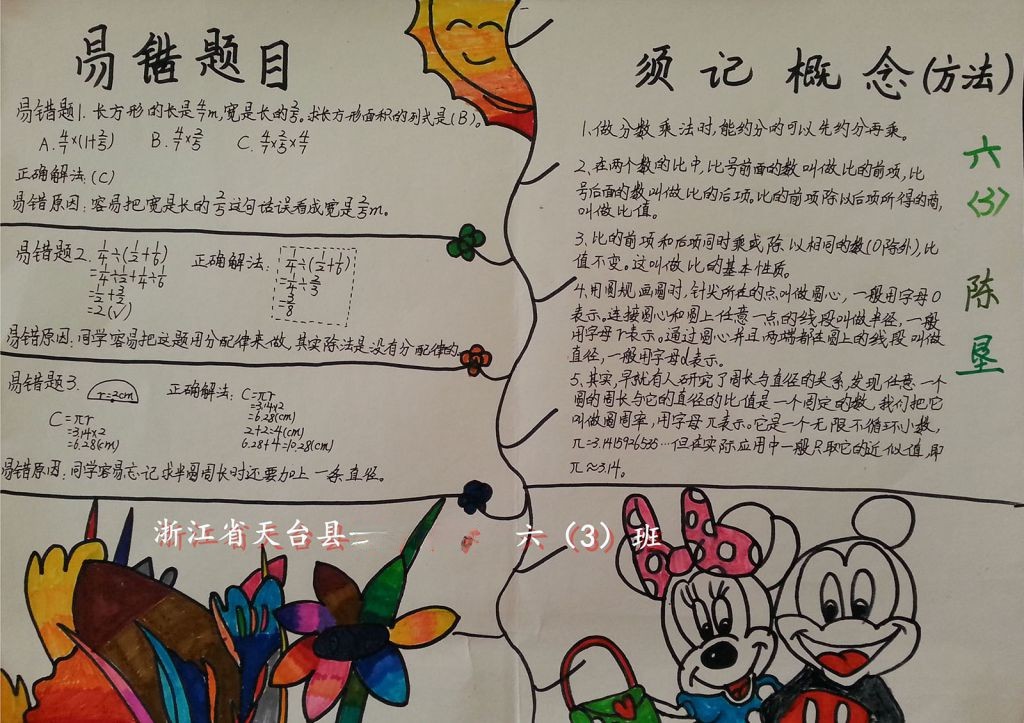 易错题目
易错题1.长方形的长是4/7m,宽是长的2/5。求长方形面积的列式是(B)。
A.4/7×(1+2/5) B.4/7×2/5 C.4/7×2/5×4/7
正确解法:(C)
易错原因:容易把宽是长的2/5这句话误看成宽是2/5m。
易错题2.1/4÷(1/2+1/6)
=1/4÷1/2+1/4÷1/6
=1/2+3/2
=2(√)
正确解法:
1/4÷(1/2+1/6)
=1/4÷2/3
=3/8
易错原因:同学容易把这题用分配律来做,其实除法是没有分配律的。
易错题3.
r=2cm
C=πr
=3.14×2
=6.28(cm)
正确解法:C=πr
=3.14×2
=6.28(cm)
2+2=4(cm)
6.28+4=10.28(cm)
易错原因:同学容易忘记求半圆周长时还要加上一条直径。
须记概念(方法)
1.做分数乘法时,能约分的可以先约分再乘。
2.在两个数的比中,比号前面的数叫做比的前项,比
号后面的数叫做比的后项。比的前项除以后项所得的商,
叫做比值。
3.比的前项和后项同时乘或除以相同的数(0除外),比
值不变。这叫做比的基本性质。
4.用圆规画圆时,针尖所在的点叫做圆心,一般用字母O
表示。连接圆心和圆上任意一点的线段叫做半径,一般
用字母r表示。通过圆心并且两端都在圆上的线段叫做
直径,一般用字母d表示。
5.其实,早就有人研究了周长与直径的关系,发现任意一个
圆的周长与它的直径的比值是一个固定的数,我们把它
叫做圆周率,用字母π表示。它是一个无限不循环小数,
π=3.1415926535…但在实际应用中一般只取它的近似值,即
π≈3.14。
六
(3)
陈
垦
浙江省天台县二 六(3)班